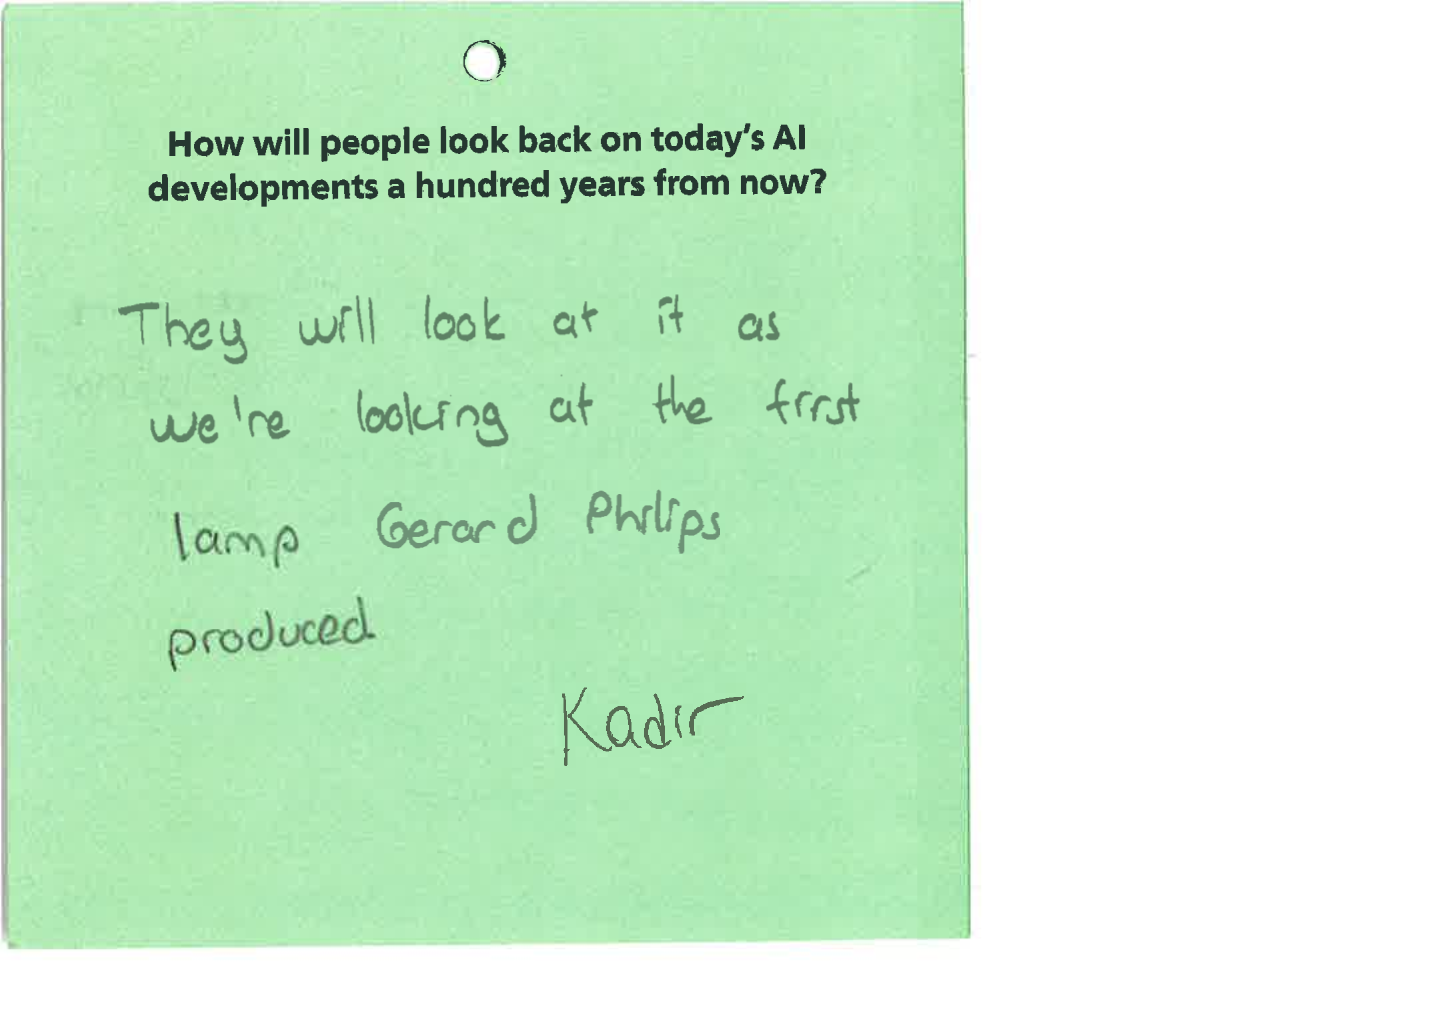 How will people look back on today's AI
developments a hundred years from now?
They will look at it as
we're looking at the first
lamp Gerard Philips
produced
Kadir